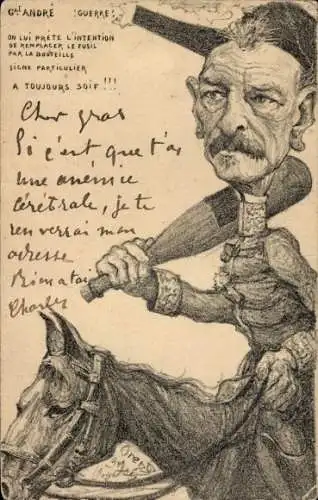 Gᵃˡ ANDRÉ (GUERRE)
ON LUI PRÈTE L'INTENTION
DE REMPLACER LE FUSIL
PAR LA BOUTEILLE
SIGNE PARTICULIER
A TOUJOURS SOIF!!!
Cher gras
Si c'est que t'as
une anémie
cérébrale, je te
renverrai mon
adresse
Bien à toi
Charles